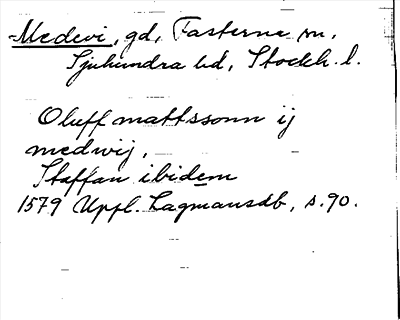 Medevi, gd, Fasterna sn,
Sjuhundra hd, Stockh. l.
Oluff mattssonn ij
medwij,
Staffan ibidem
1579 Uppl. Lagmansdb, s. 90.